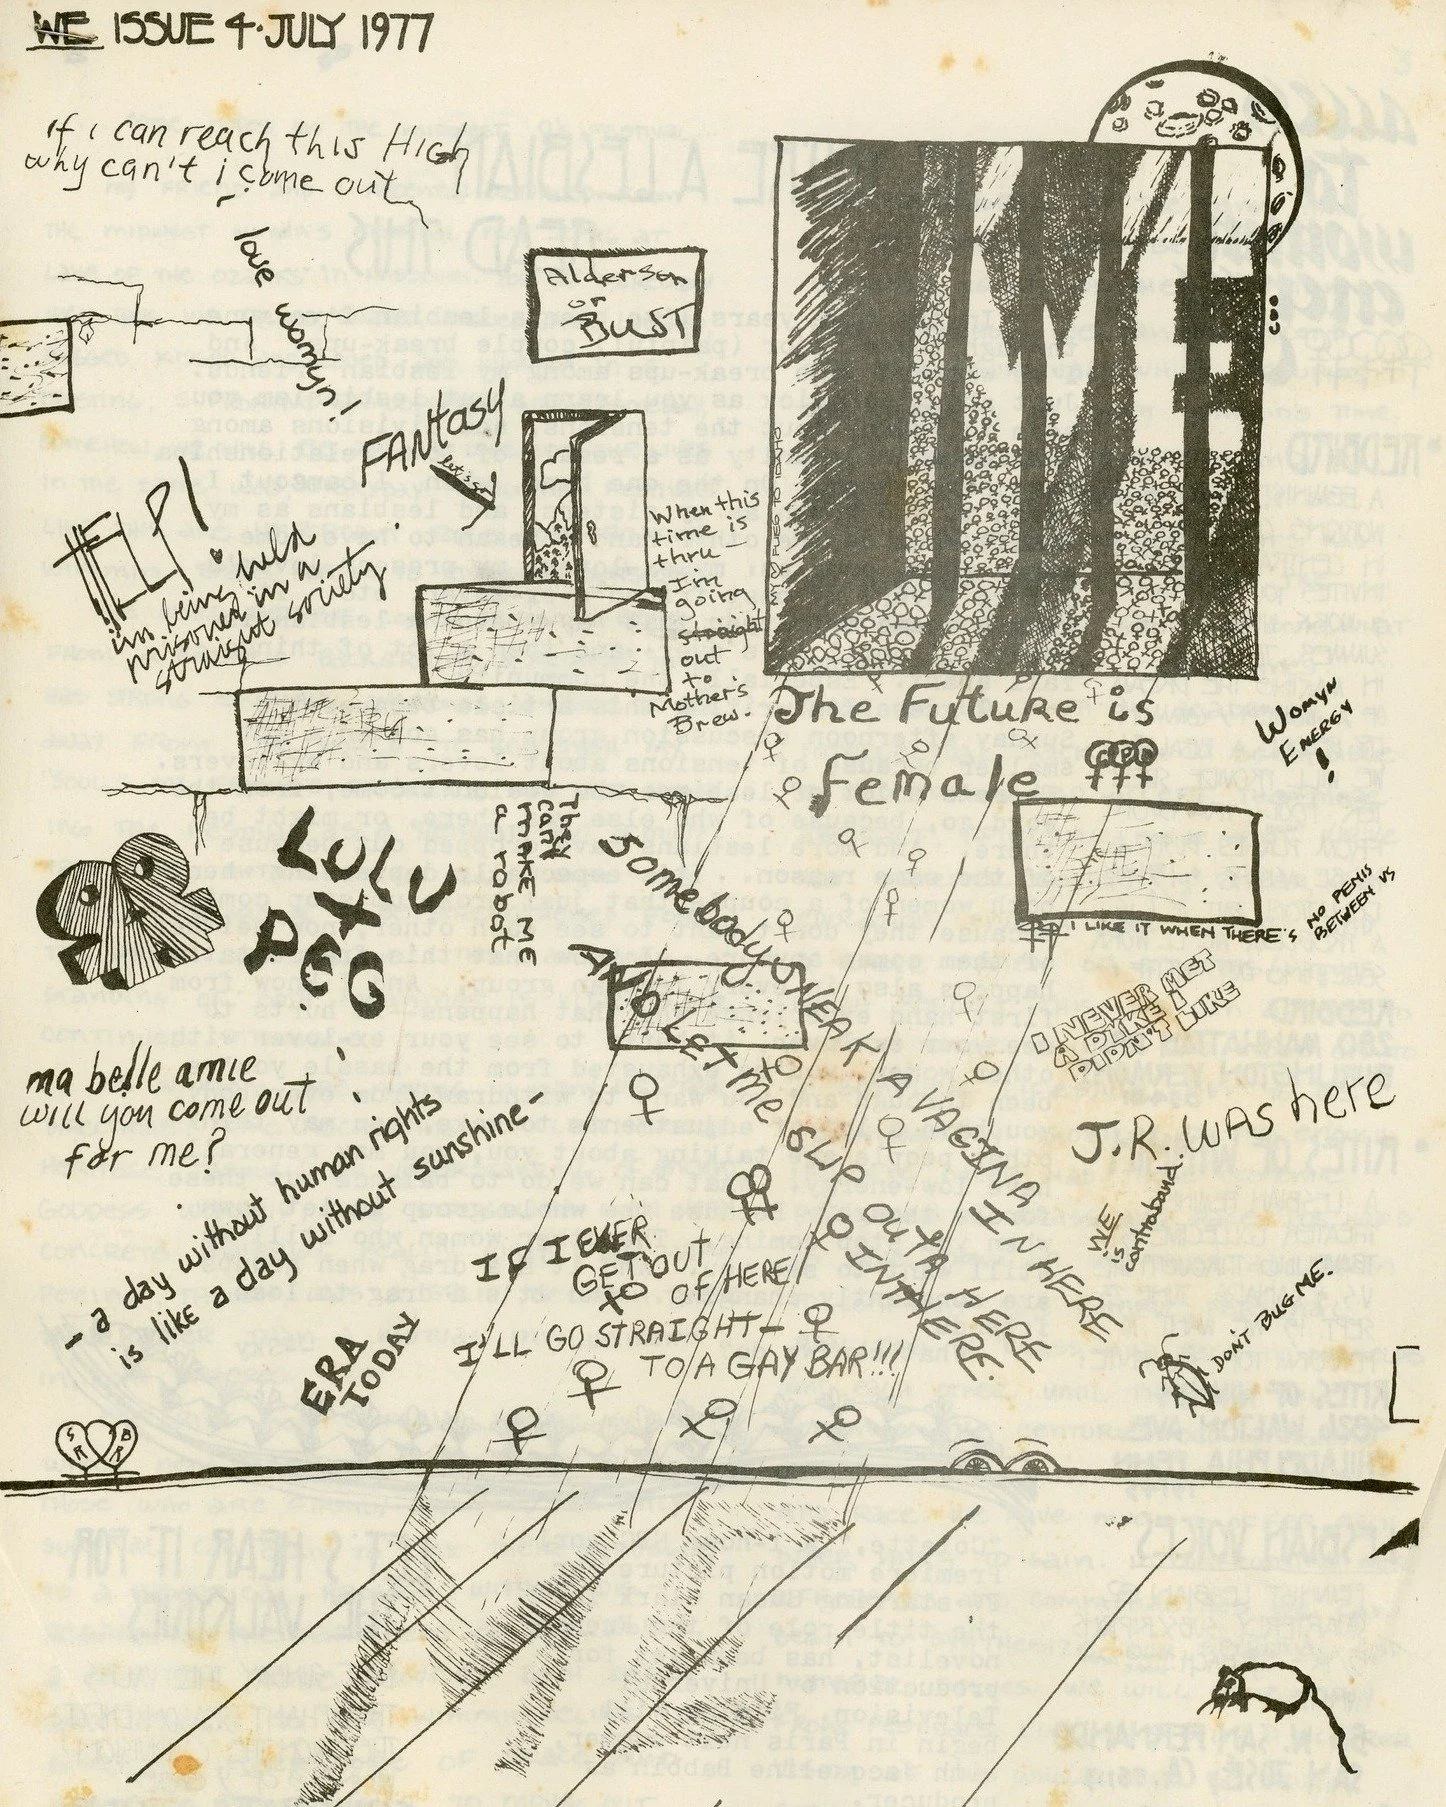 WE ISSUE 4·JULY 1977
if i can reach this HIGH
why can't i come out
- love womyn!
Alderson
or
BUST
FANTASY
let's go
HELP!
i'm being held
prisoner in a
straight society
When this
time is
thru —
I'm
going
straight
out
to
Mother's
Brew.
WE
The Future is
Female
WOMYN
ENERGY
!
LULU
X
PEG
They
can't
MAKE ME
a robot
SOMEBODY SNEAK A VAGINA IN HERE
AND LET ME SLIP OUTA HERE
INTHERE.
I LIKE IT WHEN THERE'S NO PENIS
BETWEEN US
I NEVER MET
A DYKE I
DIDN'T LIKE
ma belle amie
will you come out
for me?
J.R. WAS here
WE
is
contraband.
- a day without human rights
is like a day without sunshine -
IF I EVER
GET OUT
OF HERE
I'LL GO STRAIGHT —
TO A GAY BAR!!!
ERA
TODAY
DON'T BUG ME.